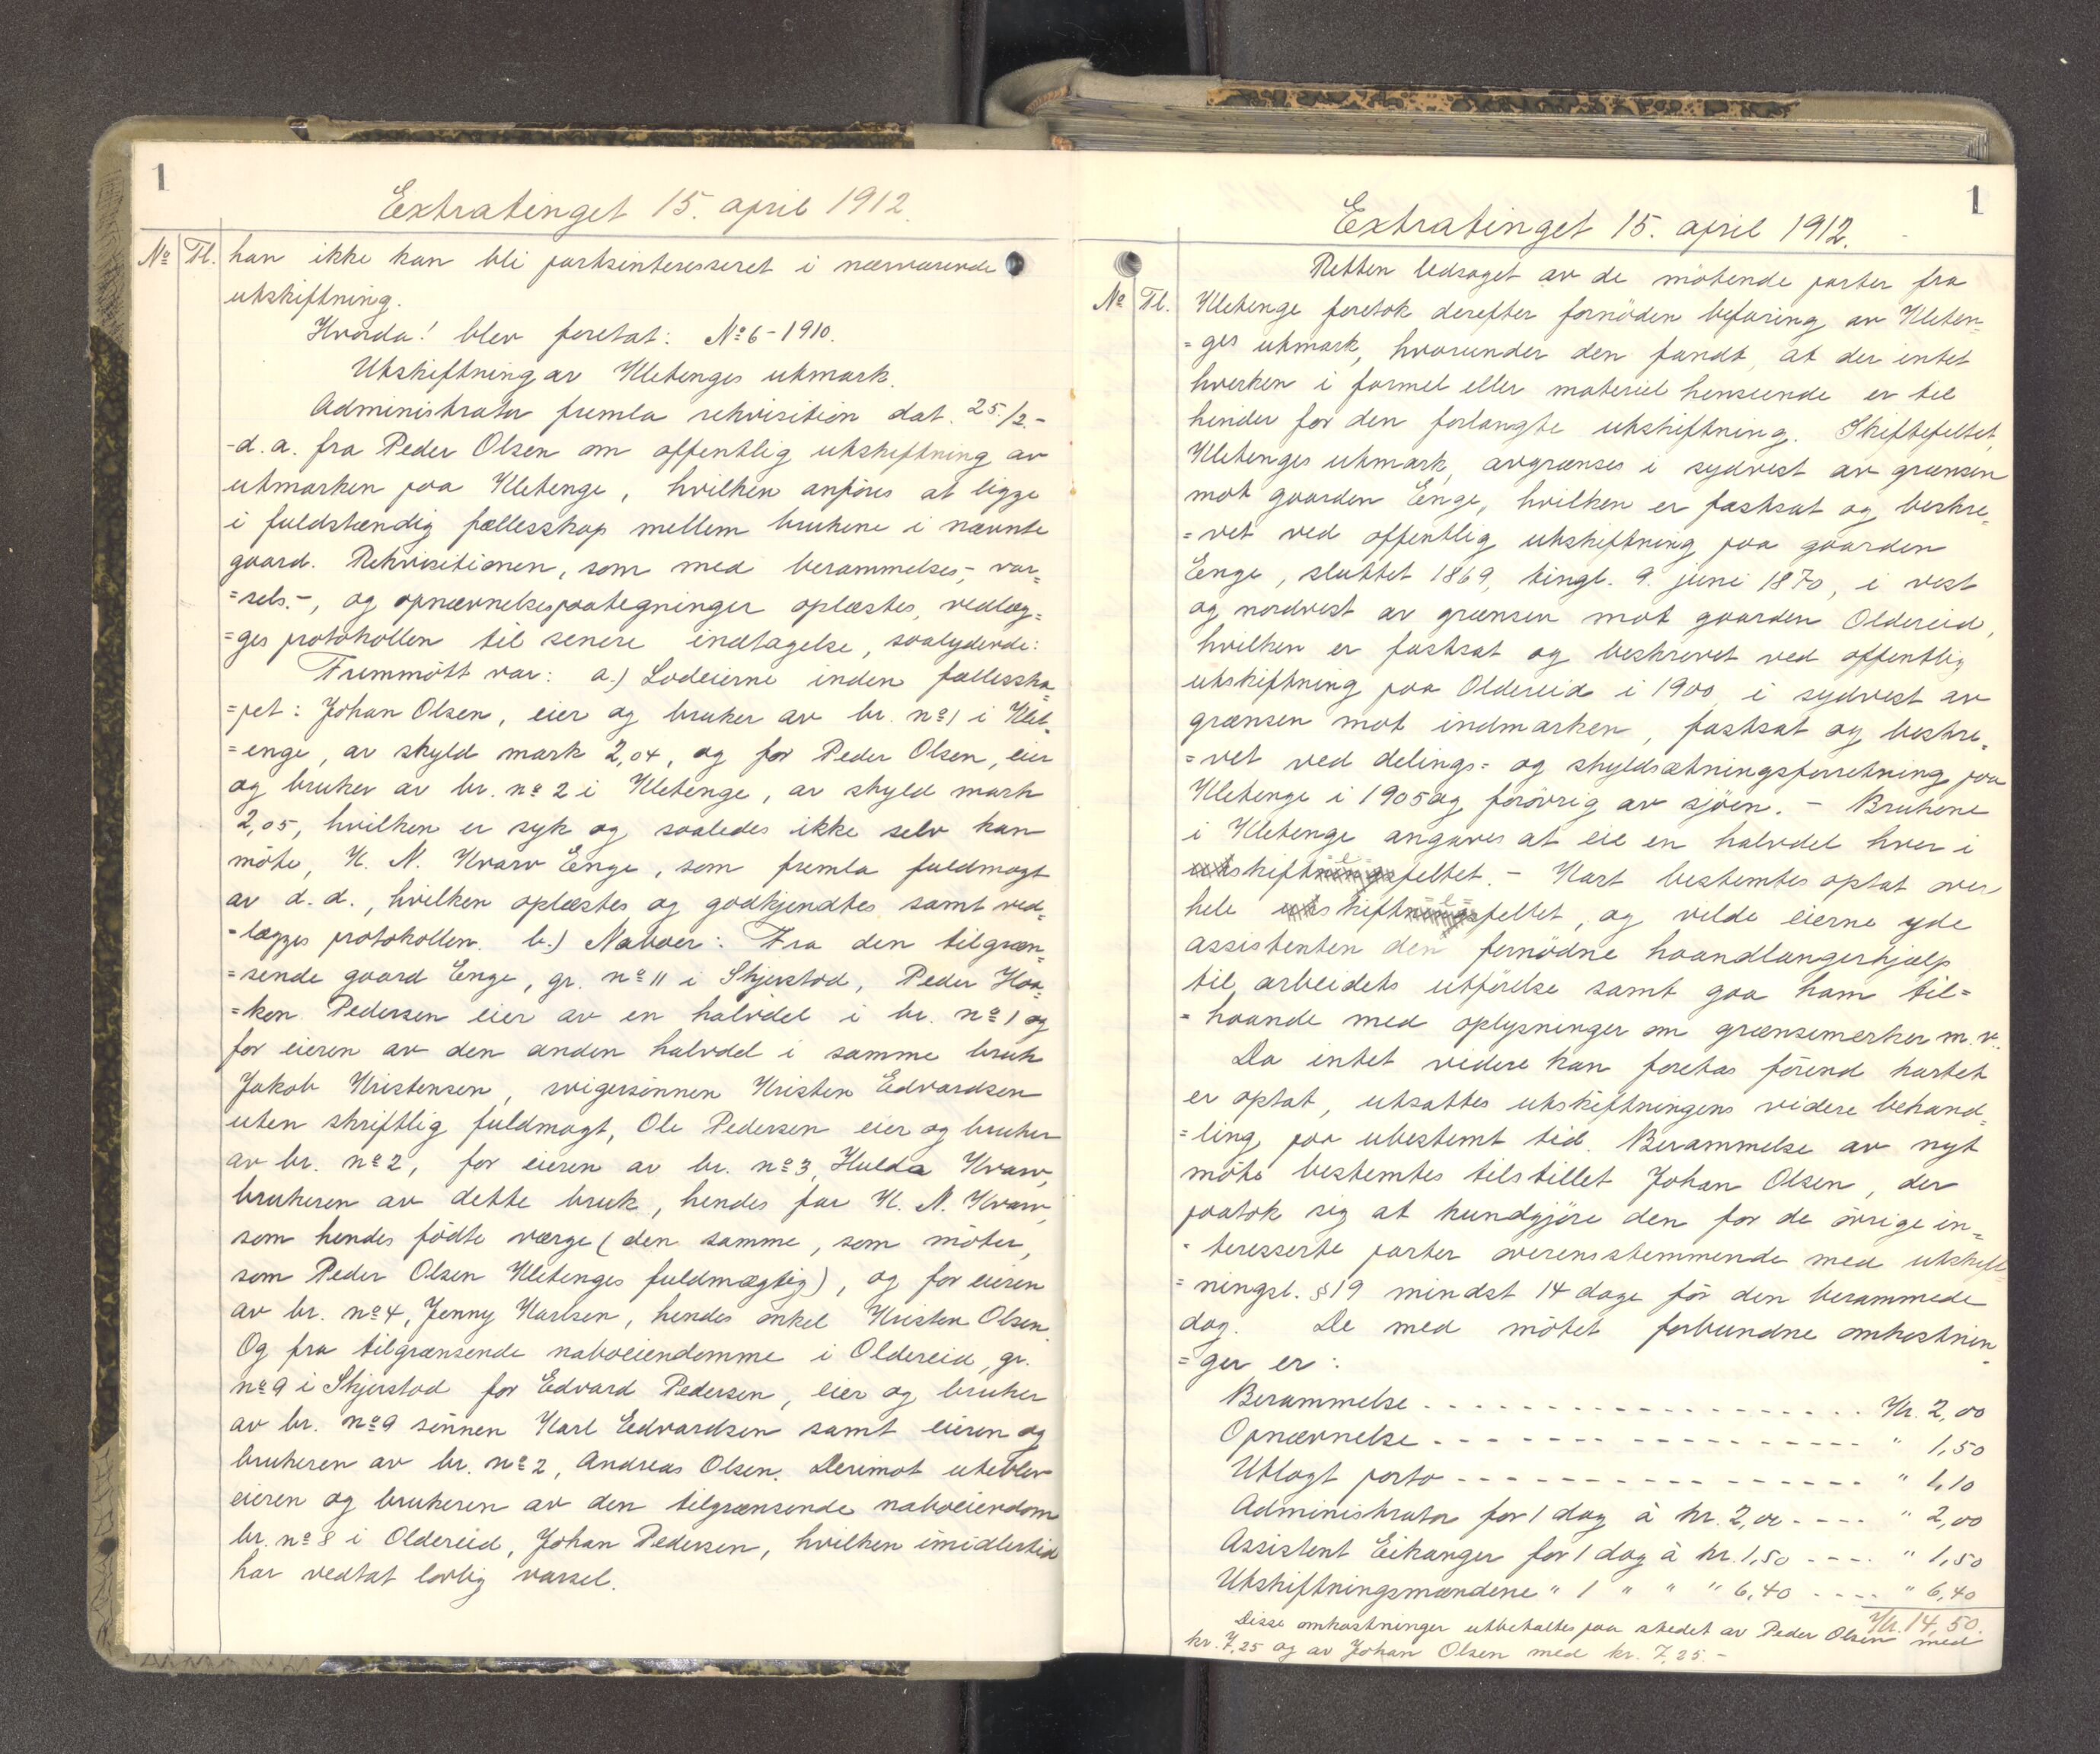 1
Extratinget 15. april 1912.
No Tl. han ikke kan bli partsinteresseret i nærværende
utskiftning.
Hvorda! blev foretat: No 6-1910.
Utskiftning av Kletenges utmark.
Administrator fremla rekvisition dat. 25./2.-
-d. a. fra Peder Olsen om offentlig utskiftning av
utmarken paa Kletenge, hvilken anføres at ligge
i fuldstændig fællesskap mellem brukene i nævnte
gaard. Rekvisitionen, som med berammelses-, var=
=sels.-, og opnævnelsespaategninger oplæstes, vedlæg=
=ges protokollen til senere indtagelse, saalydende:
Fremmött var: a.) Lodeierne inden fællesska=
=pet: Johan Olsen, eier og bruker av br. no 1 i Klet=
=enge, av skyld mark 2,04, og for Peder Olsen, eier
og bruker av br. no 2 i Kletenge, av skyld mark
2,05, hvilken er syk og saaledes ikke selv kan
möte, K. N. Kvarv Enge, som fremla fuldmagt
av d. d., hvilken oplæstes og godkjendtes samt ved=
=lægges protokollen. b.) Naboer: Fra den tilgræn=
=sende gaard Enge, gr. no 11 i Skjerstad, Peder Haa=
=kon Pedersen eier av en halvdel i br. no 1 og
for eieren av den anden halvdel i samme bruk
Jakob Kristensen, svigersönnen Kristen Edvardsen
uten skriftlig fuldmagt, Ole Pedersen eier og bruker
av br. no 2, for eieren av br. no 3, Hulda Kvarv,
brukeren av dette bruk, hendes far K. N. Kvarv,
som hendes födte værge (den samme, som möter,
som Peder Olsen Kletenges fuldmægtig), og for eieren
av br. no 4, Jenny Karlsen, hendes onkel Kristen Olsen.
Og fra tilgrænsende naboeiendomme i Oldereid, gr.
no 9 i Skjerstad for Edvard Pedersen, eier og bruker
av br. no 9 sönnen Karl Edvardsen samt eieren og
brukeren av br. no 2, Andreas Olsen. Derimot uteblev
eieren og brukeren av den tilgrænsende naboeiendom
br. no 8 i Oldereid, Johan Pedersen, hvilken imidlertid
har vedtat lovlig varsel.
1
Extratinget 15. april 1912.
Retten ledsaget av de mötende parter fra
No Tl. Kletenge foretok derefter fornöden befaring av Kleten=
=ges utmark, hvorunder den fandt, at der intet
hverken i formel eller materiel henseende er til
hinder for den forlangte utskiftning. Skiftefeltet,
Kletenges utmark, avgrænses i sydvest av grænsen
mot gaarden Enge, hvilken er fastsat og beskre=
=vet ved offentlig utskiftning paa gaarden
Enge, sluttet 1869, tingl. 9. juni 1870, i vest
og nordvest av grænsen mot gaarden Oldereid,
hvilken er fastsat og beskrevet ved offentlig
utskiftning paa Oldereid i 1900, i sydvest av
grænsen mot indmarken, fastsat og beskre=
=vet ved delings= og skyldsætningsforretning paa
Kletenge i 1905 og forövrig av sjöen. - Brukene
i Kletenge angaves at eie en halvdel hver i
utskiftningsfeltet. - Kart bestemtes optat over
hele utskiftningsfeltet, og vilde eierne yde
assistenten den fornödne haandlangerhjælp
til arbeidets utförelse samt gaa ham til=
=haande med oplysninger om grænsemerker m. v.
Da intet videre kan foretas förend kartet
er optat, utsattes utskiftningens videre behand=
=ling paa ubestemt tid. Berammelse av nyt
möte bestemtes tilstillet Johan Olsen, der
paatok sig at kundgjöre den for de övrige in=
=teresserte parter overensstemmende med utskift=
=ningsl. § 19 mindst 14 dage för den berammede
dag. De med mötet forbundne omkostnin=
=ger er:
Berammelse - - - Kr. 2,00
Opnævnelse - - - " 1,50
Utlagt porto - - - " 1,10
Administrator for 1 dag à kr. 2,00 - - - - " 2,00
Assistent Eikanger for 1 dag à kr. 1,50 - - - - " 1,50
Utskiftningsmændene " 1 " " " 6,40 - - - - " 6,40
Kr. 14,50.
Disse omkostninger utbetaltes paa stedet av Peder Olsen med
kr. 7,25 og av Johan Olsen med kr. 7,25. -